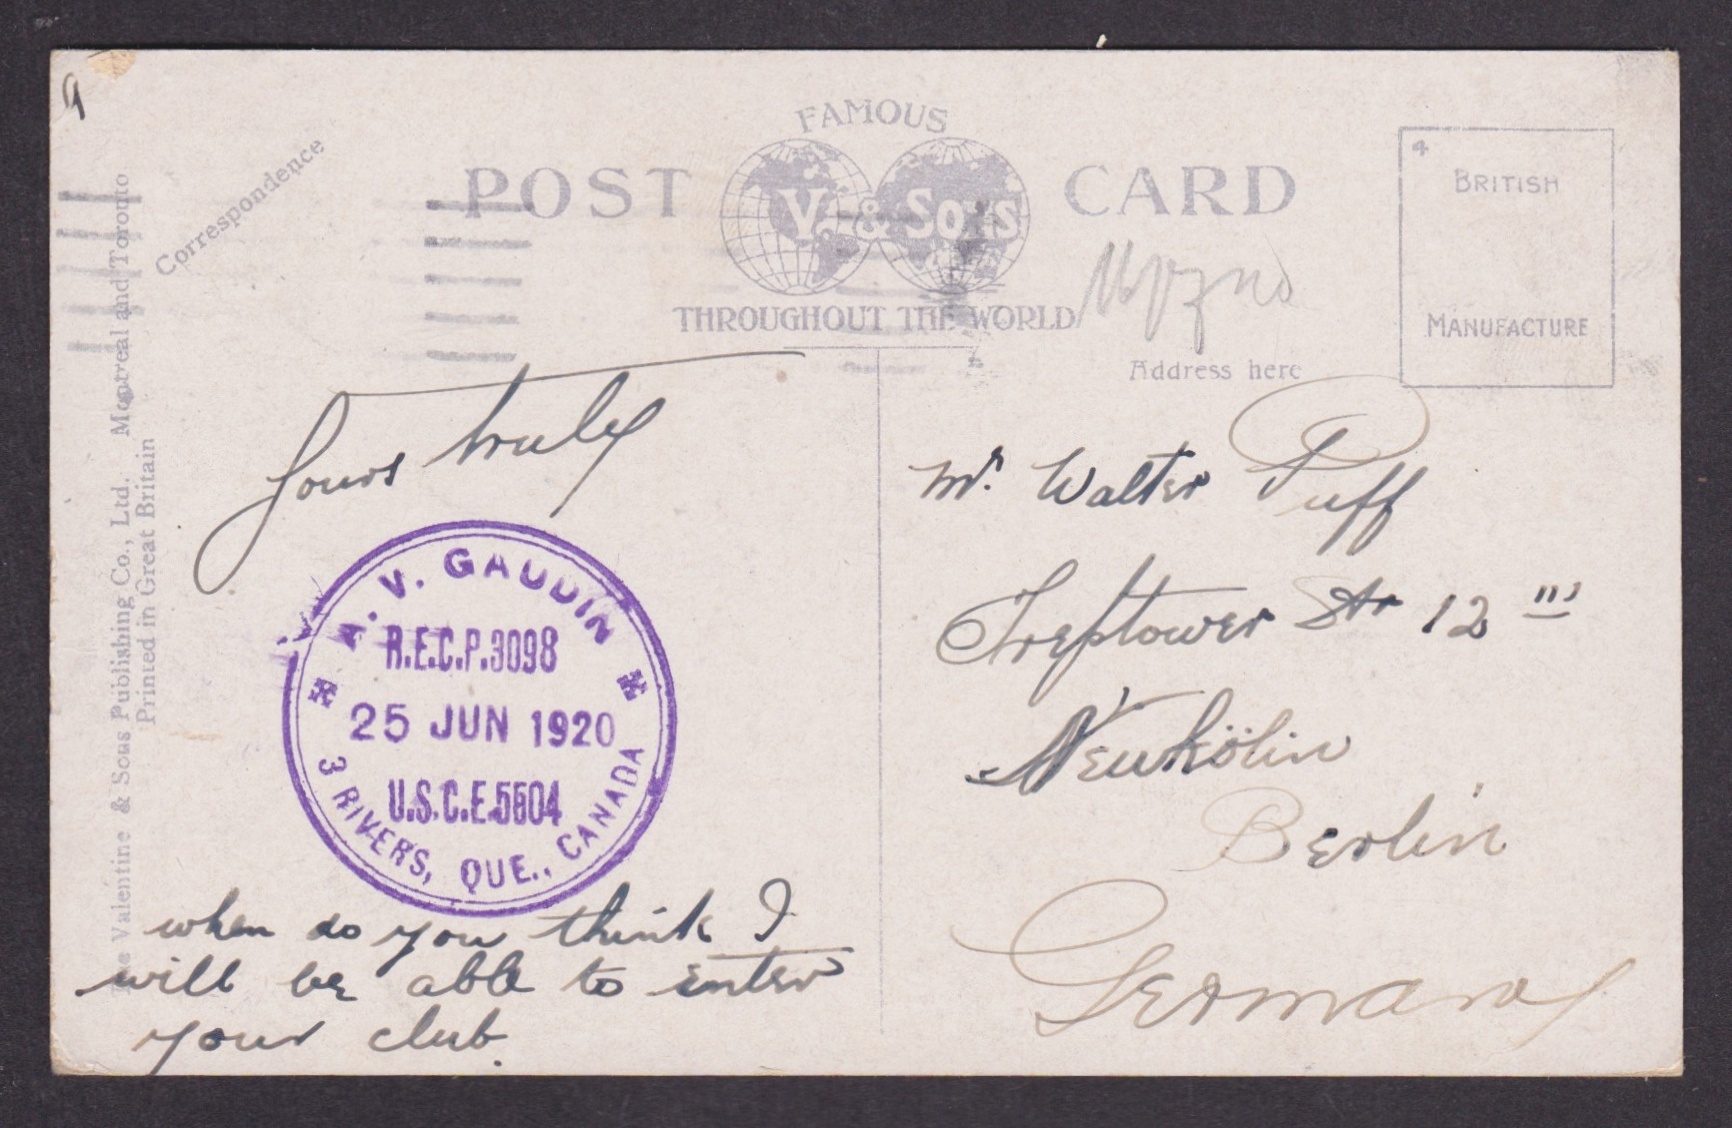 9
Correspondence
FAMOUS
POST V. & Sons CARD
THROUGHOUT THE WORLD
Address here
4
BRITISH
MANUFACTURE
The Valentine & Sons Publishing Co., Ltd. Montreal and Toronto
Printed in Great Britain
Yours truly
A. V. GAUDIN
R.E.C.P.3098
25 JUN 1920
U.S.C.E.5604
3 RIVERS, QUE., CANADA
when do you think I
will be able to enter
your club.
Mr. Walter Puff
Treptower Str 12 III
Neukölin
Berlin
Germany